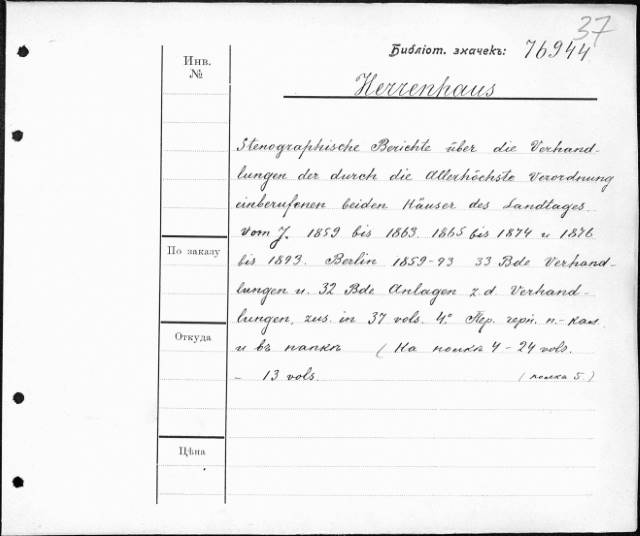 37
Библіот. значекъ: 76944
Инв. №
Herrenhaus
Stenographische Berichte über die Verhand-
lungen der durch die Allerhöchste Verordnung
einberufenen beiden Häuser des Landtages.
Vom J. 1859 bis 1863. 1865 bis 1874 u 1876
По заказу
bis 1893. Berlin 1859-93 33 Bde Verhand-
lungen u. 32 Bde Anlagen z. d. Verhand-
lungen, zus. in 37 vols. 4° Пер. черн. п.-кал.
Откуда
и въ папкѣ (На полкѣ 4 - 24 vols.
- 13 vols. (полка 5.)
Цѣна